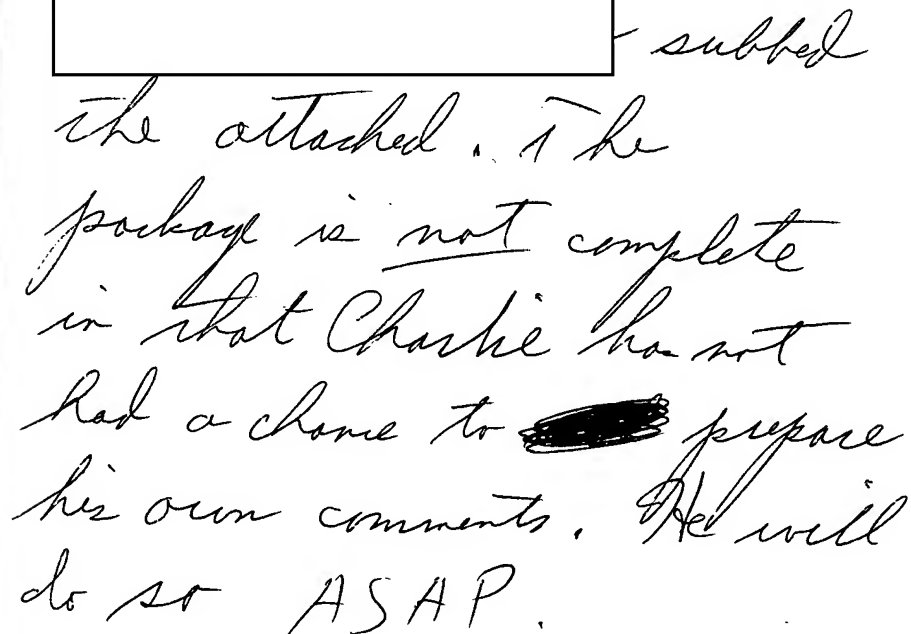 - subbed
the attached. The
package is not complete
in that Charlie has not
had a chance to prepare
his own comments. He will
do so ASAP.